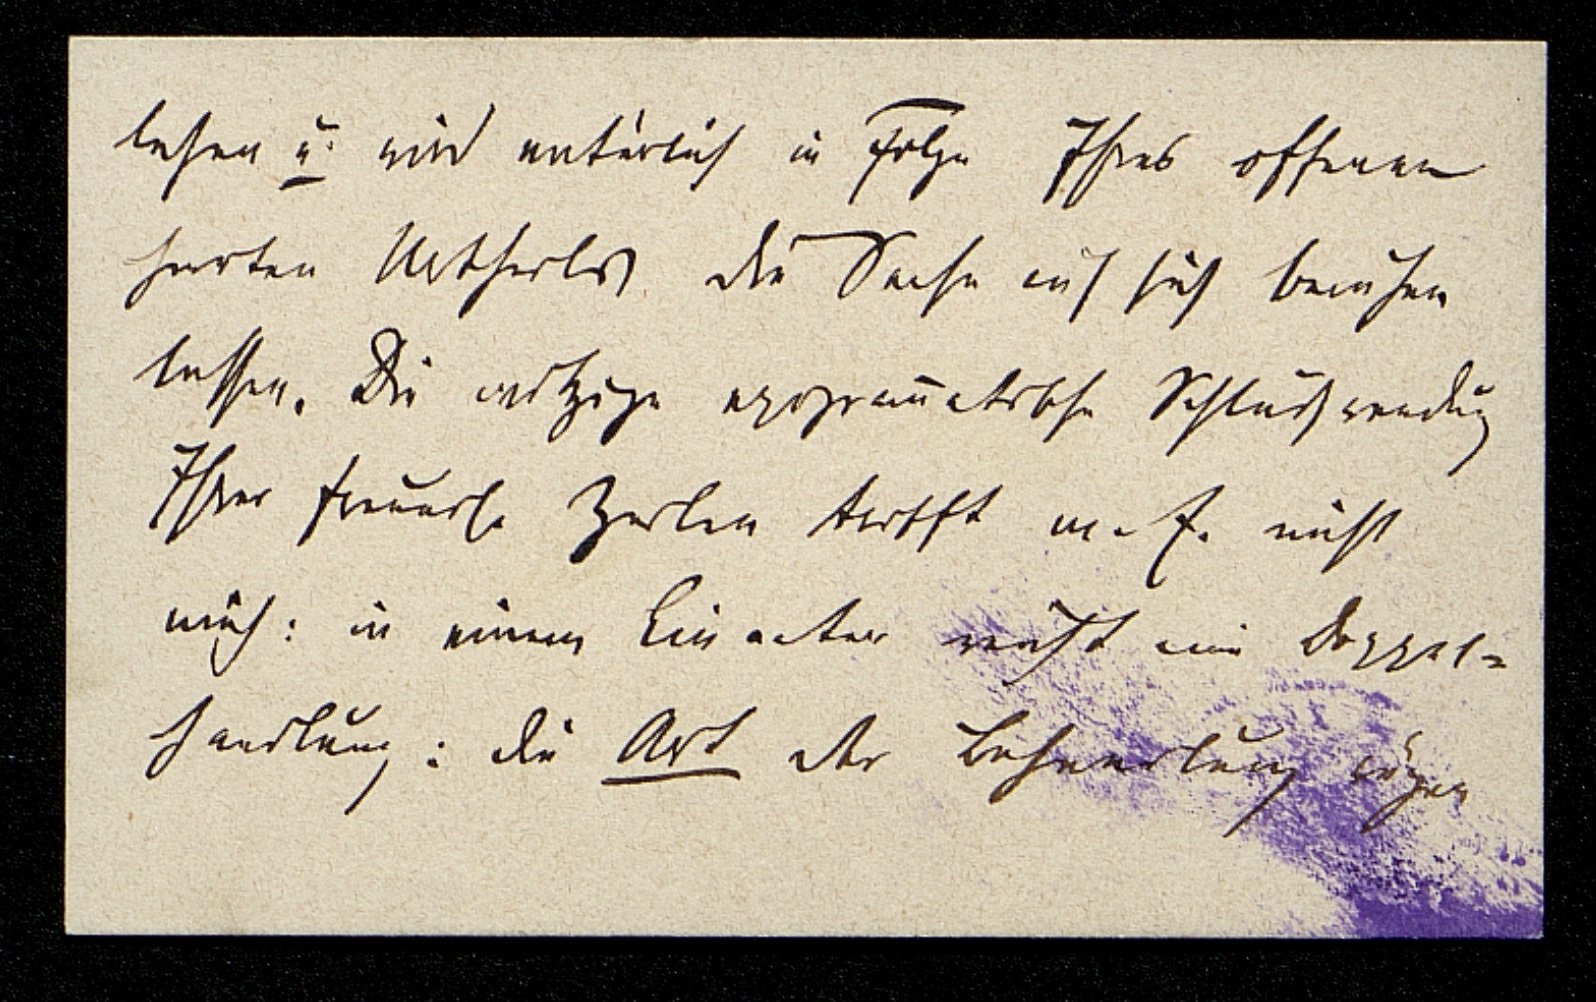 lassen u. wird natürlich in Folge Ihres offenen
harten Urtheils die Sache auf sich beruhen
lassen. Die witzige epigrammatische Schlußwendung
Ihrer freundl. Zeilen trifft m. E. nicht
mich: in einem Einacter reicht eine Doppel-
handlung: die Art der Behandlung